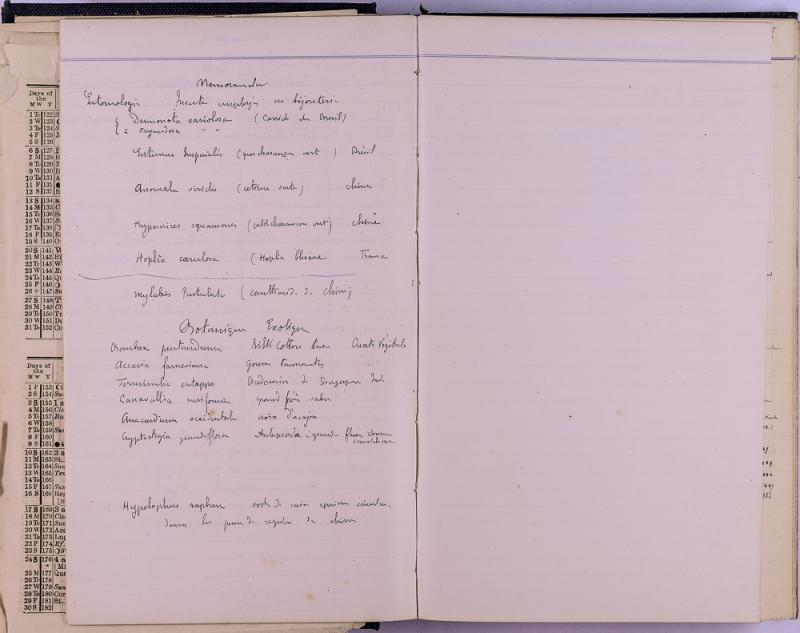 Memoranda
Entomologie. Insectes employés en bijouterie
Desmonota variolosa (Casside du Brésil)
" oxygonidora " "
Entimus Imperialis (gros charançon vert) Brésil
Anomala viridis (cétoine verte) chine
Hypomices squamosus (petit charancon vert) chine
Hoplia cærulosa (Hoplia bleue) France
Mylabris Pustulata (cantharide de chine)
Botanique Exotique
Bombax pentandrum Silk Cotton tree Ouate Végétale
Accacia farnesiana gomme
Terminalia catappa Badamier de Singapour
Canavallia ensiformis grand pois sabre
Anacardium occidentale noix d'acajou
Cryptostegia grandiflora Asclepiade à grande fleur
Hypolophus sephen sorte de raie
dans la de chine
Days of the
M W Y
1 Tu 122
2 W 123
3 Th 124
4 F 125
5 S 126
6 S 127
7 M 128
8 Tu 129
9 W 130
10 Th 131
11 F 132
12 S 133
13 S 134
14 M 135
15 Tu 136
16 W 137
17 Th 138
18 F 139
19 S 140
20 S 141
21 M 142
22 Tu 143
23 W 144
24 Th 145
25 F 146
26 S 147
27 S 148
28 M 149
29 Tu 150
30 W 151
31 Th 152
Days of the
M W Y
1 F 153
2 S 154
3 S 155
4 M 156
5 Tu 157
6 W 158
7 Th 159
8 F 160
9 S 161
10 S 162
11 M 163
12 Tu 164
13 W 165
14 Th 166
15 F 167
16 S 168
17 S 169
18 M 170
19 Tu 171
20 W 172
21 Th 173
22 F 174
23 S 175
24 S 176
25 M 177
26 Tu 178
27 W 179
28 Th 180
29 F 181
30 S 182